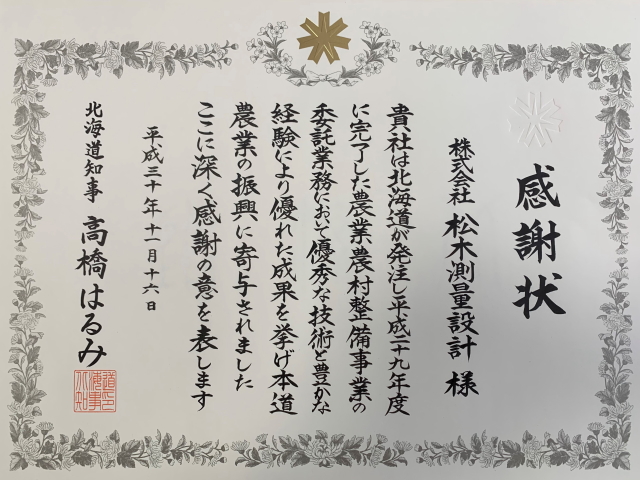 感謝状
株式会社 松木測量設計 様
貴社は北海道が発注し平成二十九年度
に完了した農業農村整備事業の
委託業務において優秀な技術と豊かな
経験により優れた成果を挙げ本道
農業の振興に寄与されました
ここに深く感謝の意を表します
平成三十年十一月十六日
北海道知事 高橋はるみ